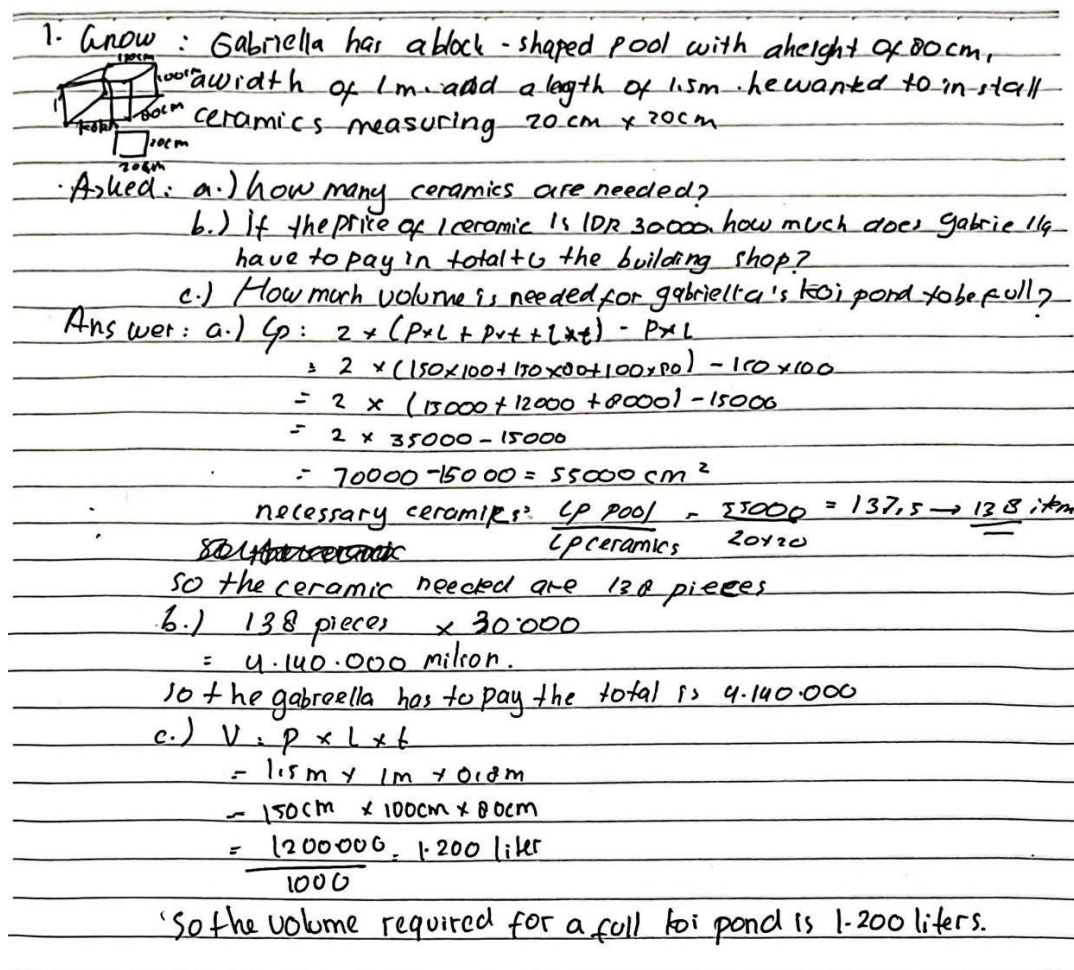 1. Gnow : Gabriella has a block - shaped pool with aheight of 80cm,
a width of 1m. and a length of 1.5m. he wanted to in stall
ceramics measuring 20 cm x 20cm
100cm
80cm
20cm
20cm
Asked: a.) how many ceramics are needed?
b.) if the price of 1 ceramic is IDR 30000. how much does gabrie lla
have to pay in total to the building shop?
c.) How much volume is needed for gabriella's koi pond to be full?
Answer: a.) Lp : 2 x (PxL + Pxt + Lxt) - PxL
= 2 x (150x100 + 150x80 + 100x80) - 150 x 100
= 2 x (15000 + 12000 + 8000) - 15000
= 2 x 35000 - 15000
= 70000 - 15000 = 55000 cm²
necessary ceramics: LP pool / Lp ceramics = 55000 / 20x20 = 137,5 → 138 item
so the ceramic needed are 138 pieces
b.) 138 pieces x 30.000
= 4.140.000 milion.
so the gabreella has to pay the total is 4.140.000
c.) V : P x L x t
= 1.5m x 1m x 0.8m
= 150cm x 100cm x 80cm
= 1200000 / 1000 = 1.200 liter
So the volume required for a full koi pond is 1.200 liters.